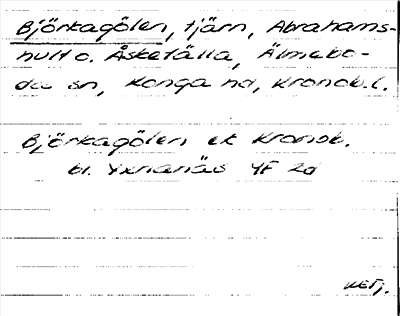 Björkagölen, tjärn, Abrahams-
hult o. Åsketälla, Älmebo-
da sn, Konga hd, Kronob.l.
Björkagölen ek Kronob.
bl. Yxnanäs 4F 2d